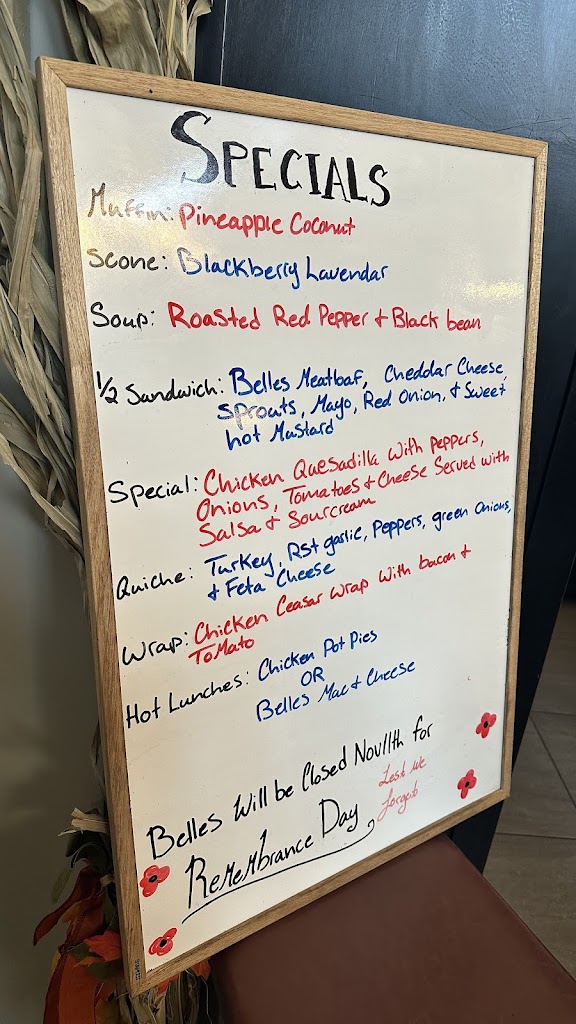 SPECIALS
Muffin: Pineapple Coconut
Scone: Blackberry Lavendar
Soup: Roasted Red Pepper + Black bean
1/2 Sandwich: Belles Meatloaf, Cheddar Cheese,
Sprouts, Mayo, Red Onion, + Sweet
hot Mustard
Special: Chicken Quesadilla with Peppers,
Onions, Tomatoes + Cheese Served with
Salsa + Sourcream
Quiche: Turkey, Rst garlic, Peppers, green onions,
+ Feta Cheese
Wrap: Chicken Ceasar Wrap with bacon +
Tomato
Hot Lunches: Chicken Pot Pies
OR
Belles Mac + Cheese
Belles Will be Closed Nov 11th for
Remembrance Day
Lest We
forget